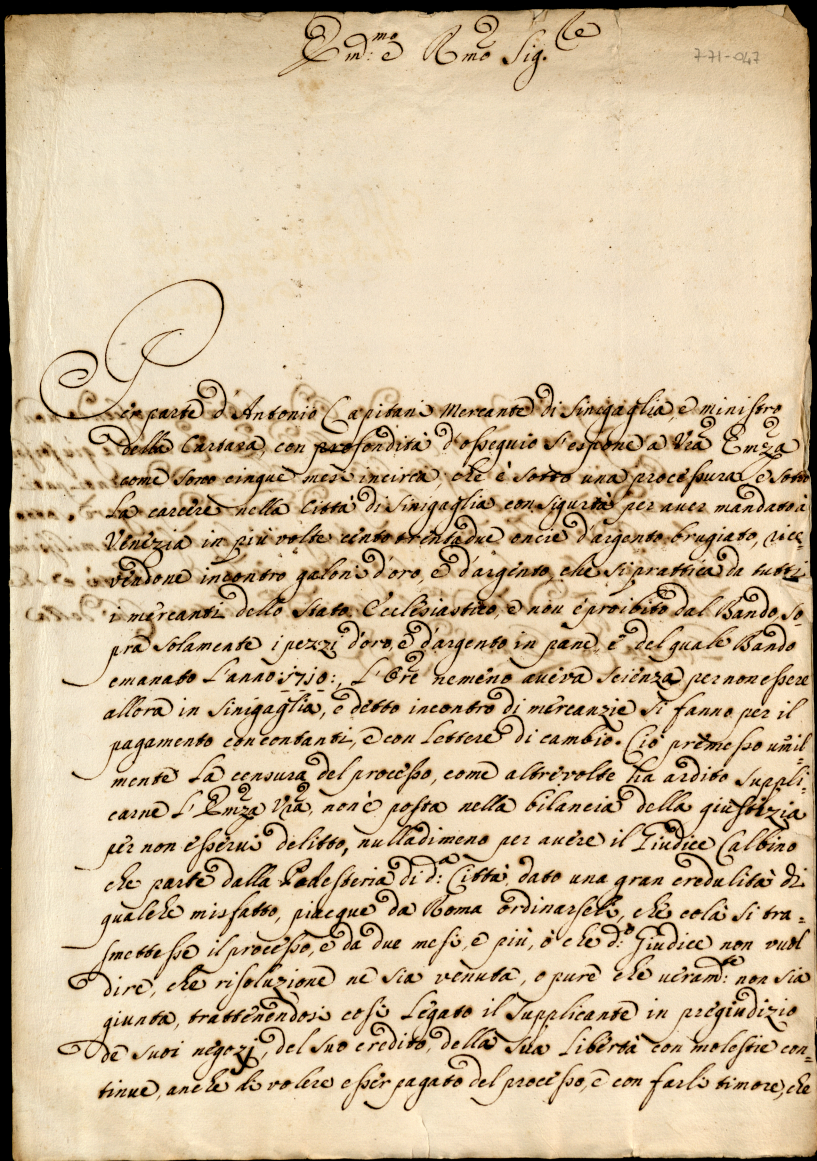 Em.mo e R.mo Sig.re
771-047
Per parte d'Antonio Capitani Mercante di Sinigaglia, e ministro
della Cartara, con profondità d'ossequio s'espone a Vra Emza
come sono cinque mesi incirca, che è sotto una processura, e sotto
la carcere nella Città di Sinigaglia con sigurtà per aver mandato à
Venezia in più volte cento trentadue oncie d'argento brugiato, rice-
vendone incontro galoni d'oro, e d'argento, che si prattica da tutti
i mercanti dello Stato Ecclesiastico, e non è proibito dal Bando, so-
pra solamente i pezzi d'oro, e d'argento in pane, e del quale Bando
emanato l'anno 1710:, l'Ore nemeno aveva scienza per non essere
allora in Sinigaglia, e detto incontro di mercanzie si fanno per il
pagamento con contanti, e con lettere di cambio. Ciò premesso umil-
mente la censura del processo, come altre volte ha ardito suppli-
carne l'Emza Vra, non è posta nella bilancia della giustizia
per non esservi delitto, nulladimeno per avere il Giudice Calbino
che parte dalla Podesteria di d.a Città, dato una gran credulità di
qualche misfatto, piacque da Roma ordinarseli, che colà si tra-
smettesse il processo, e da due mesi, e più, ò che d.o Giudice non vuol
dire, che risoluzione ne sia venuta, o pure che veram.te non sia
giunta, trattenendosi così legato il supplicante in pregiudizio
de suoi negozj, del suo credito, della sua libertà con molestie con-
tinue, anche di volere esser pagato del processo, e con farli timore, che